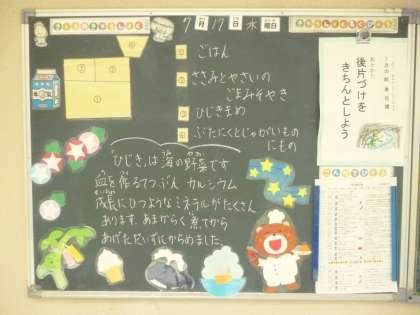 7月17日水曜日
① ごはん
② ささみとやさいの
ごまみそやき
③ ひじきまめ
④ ぶたにくとじゃがいもの
にもの
③
②
①
"ひじき"は海の野菜です
血を作るてつぶん カルシウム
成長にひつようなミネラルがたくさん
あります。あまからく煮てから
あげただいずにからめました。
後片づけを
きちんとしよう